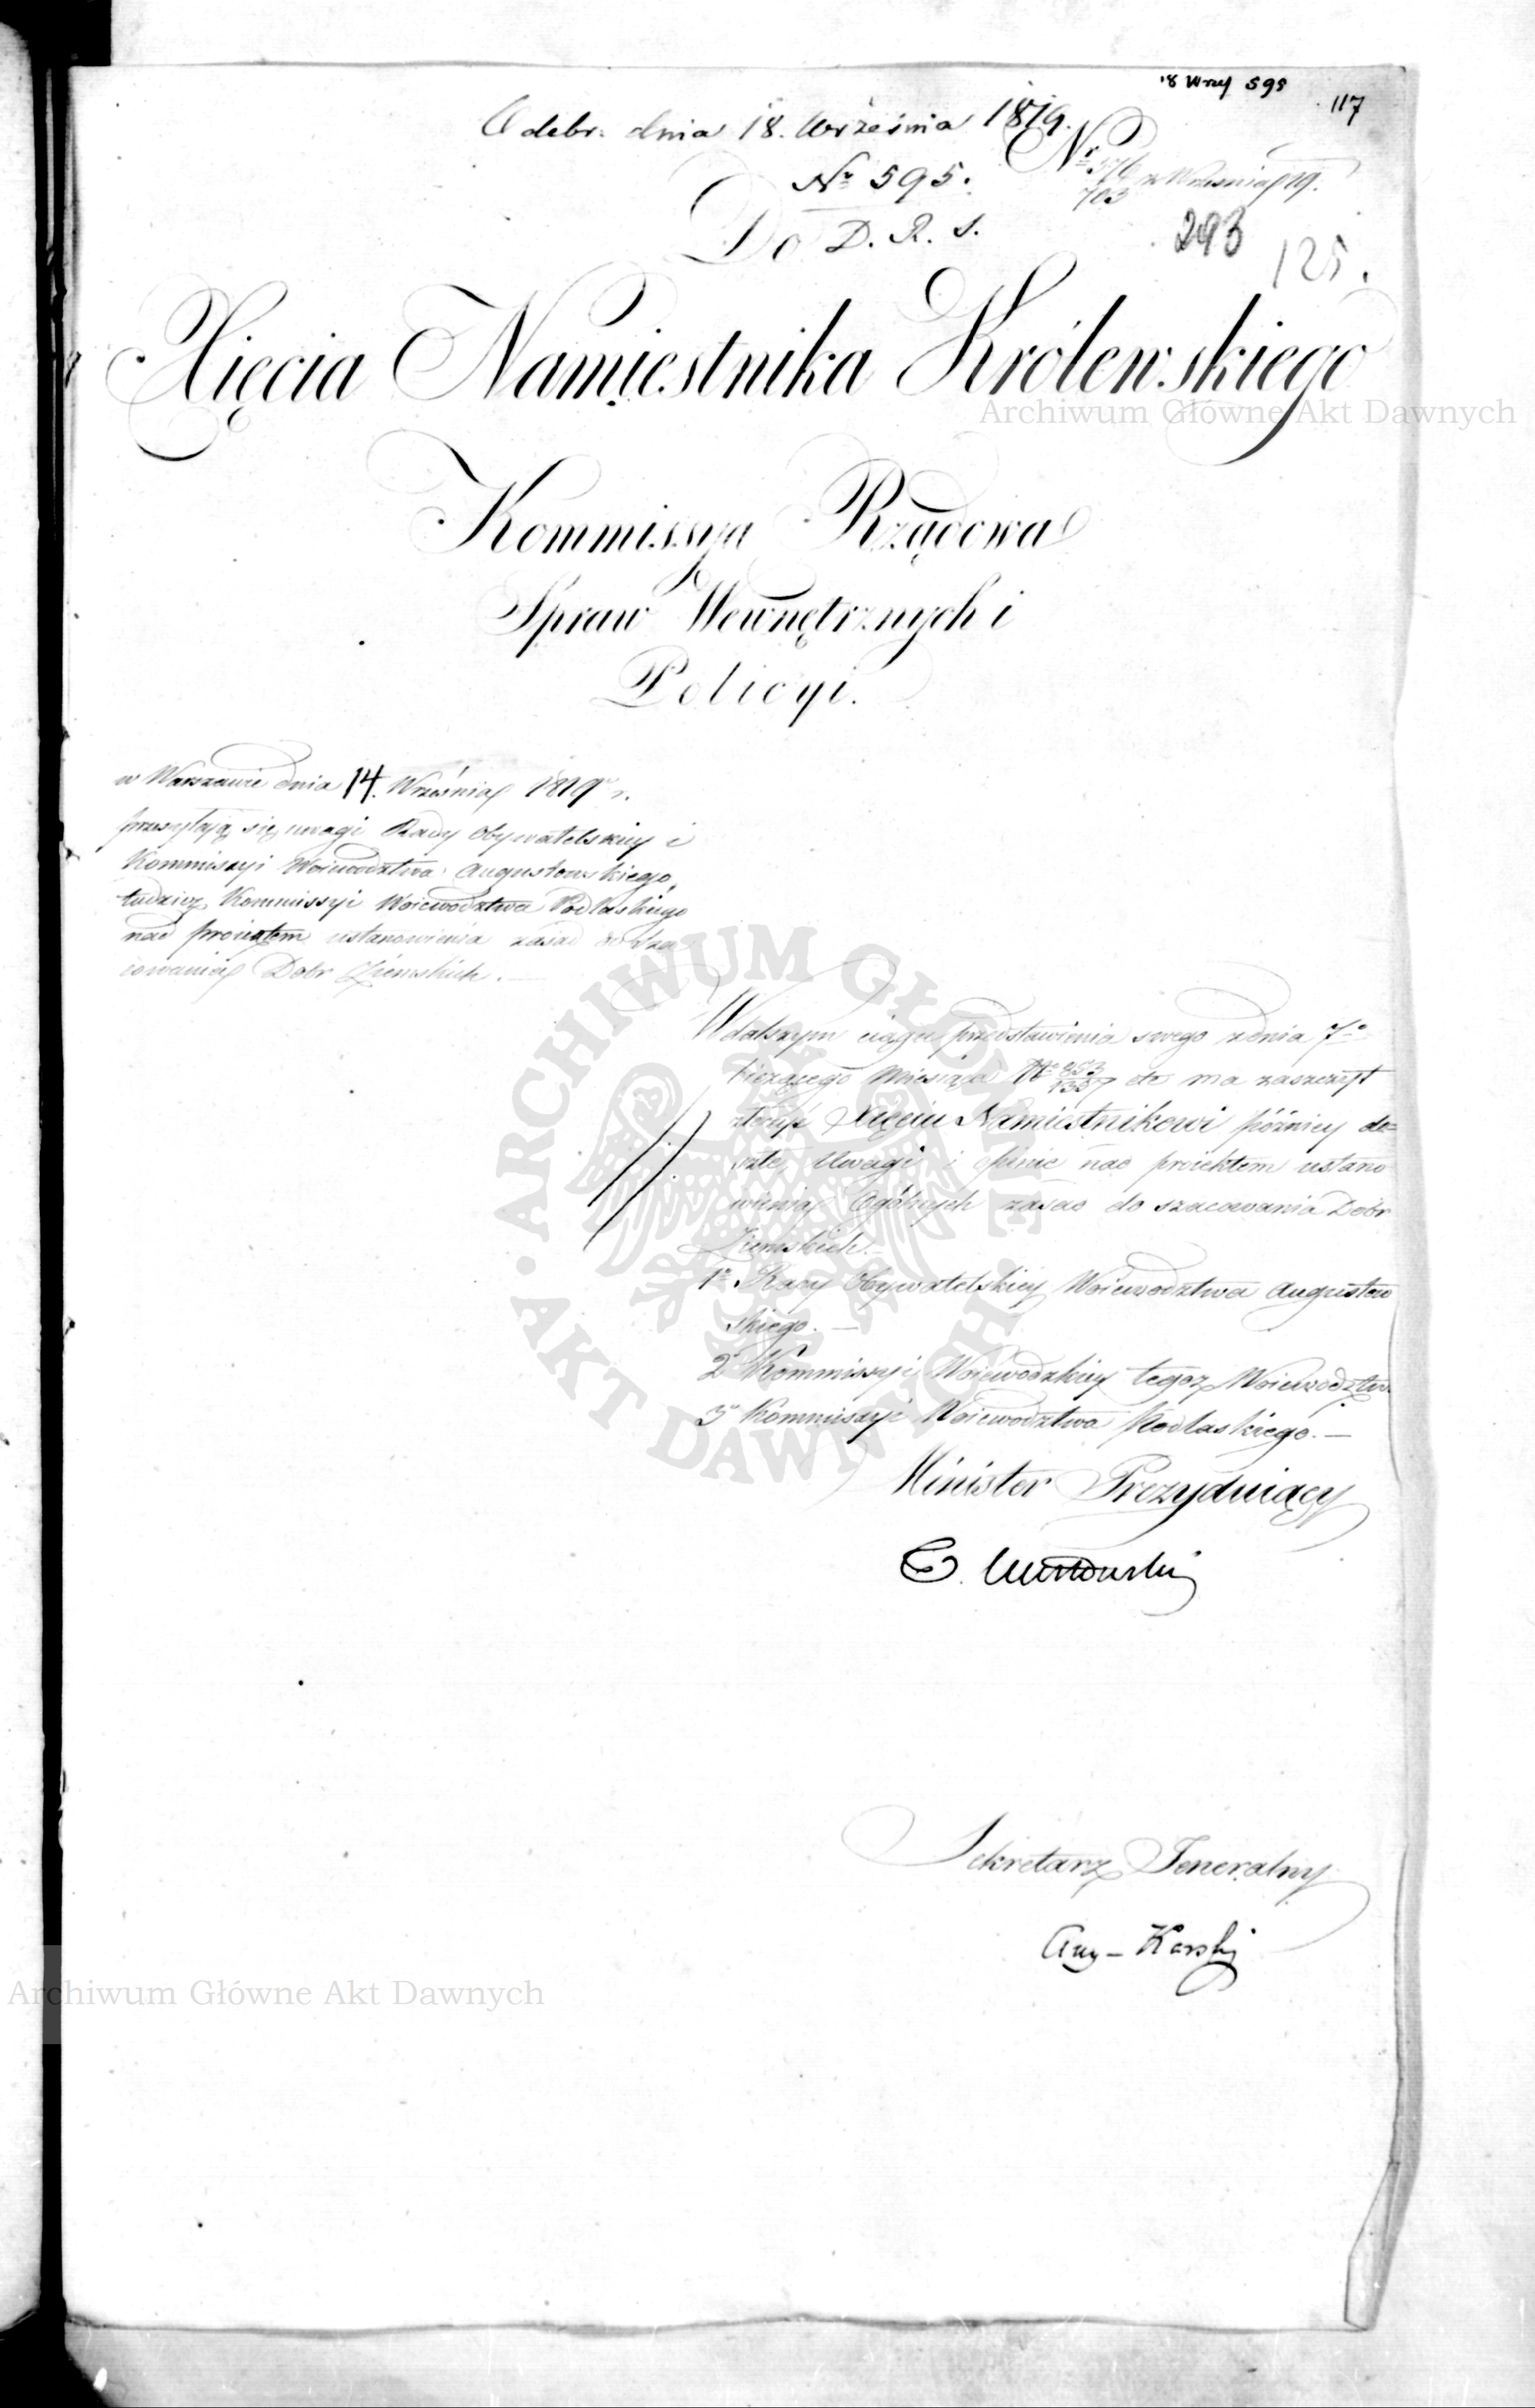 18 Wrz 595
117
Odebr. dnia 18. Września 1819.
No 595.
Nr 576/703 z Września 19.
Do D. R. S.
293
125.
Xięcia Namiestnika Królewskiego
Kommissya Rządowa
Spraw Wewnętrznych i
Policyi.
w Warszawie dnia 14. Września 1819 r.
przesyłają się uwagi Rady Obywatelskiey i
Kommissyi Woiewodztwa Augustowskiego,
tudzież Kommissyi Woiewodztwa Podlaskiego
nad proiektem ustanowienia zasad do sza
cowania Dobr Ziemskich. —
W dalszym ciągu przedstawienia swego z dnia 7o
bieżącego Miesiąca No 853/1357 ma zaszczyt
złożyć Xięciu Namiestnikowi późniey do=
szłe, Uwagi i opinie nad proiektem ustano
wienia Ogólnych zasad do szacowania Dobr
Ziemskich. —
1o Rady Obywatelskiey Woiewodztwa Augustow
skiego. —
2o Kommissyi Woiewodzkiey tegoż Woiewodztwa
3o Kommissyi Woiewodztwa Podlaskiego. —
Minister Prezyduiący
Sekretarz Jeneralny
Aug – Karski
Archiwum Główne Akt Dawnych
ARCHIWUM GŁÓWNE · AKT DAWNYCH ·
Archiwum Główne Akt Dawnych